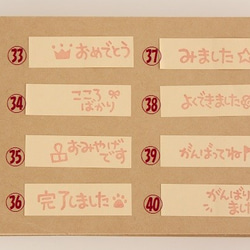 33 おめでとう
37 みました
34 こころ
ばかり
38 よくできました
35 おみやげ
です
39 がんばってね
36 完了しました
40 がんばり
まし